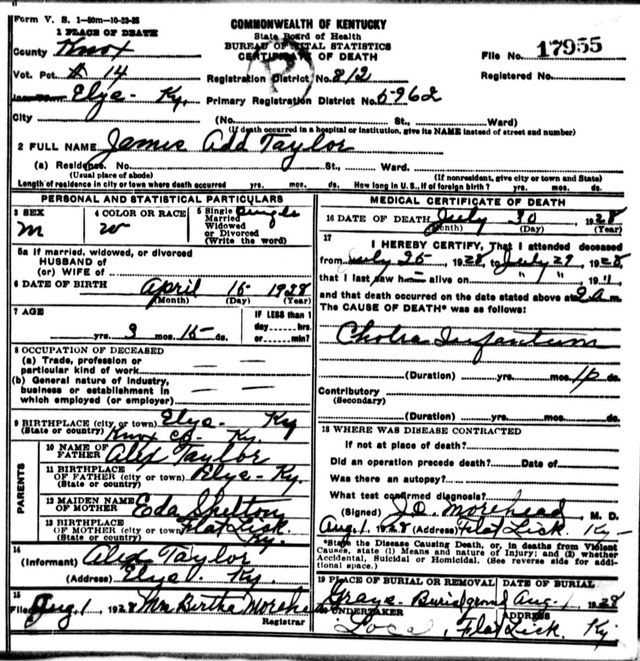 Form V. S. 1—50m—10-23-25
COMMONWEALTH OF KENTUCKY
State Board of Health
BUREAU OF VITAL STATISTICS
CERTIFICATE OF DEATH
1 PLACE OF DEATH
County Knox
File No. 17955
Vot. Pct. # 14
Registration District No. 812
Registered No.
Elys- Ky.
Primary Registration District No. 5962
City (No. St., Ward)
(If death occurred in a hospital or institution, give its NAME instead of street and number)
2 FULL NAME James Add Taylor
(a) Residence. No. St., Ward.
(Usual place of abode) (If nonresident, give city or town and State)
Length of residence in city or town where death occurred yrs. mos. ds. How long in U. S., if of foreign birth? yrs. mos. ds.
PERSONAL AND STATISTICAL PARTICULARS
3 SEX
M
4 COLOR OR RACE
W
5 Single Single
Married
Widowed
or Divorced
(Write the word)
5a If married, widowed, or divorced
HUSBAND of
(or) WIFE of
6 DATE OF BIRTH April 15- 1928
(Month) (Day) (Year)
7 AGE
yrs. 3 mos. 15 ds.
IF LESS than 1
day hrs.
or min.?
8 OCCUPATION OF DECEASED
(a) Trade, profession or
particular kind of work — —
(b) General nature of industry,
business or establishment in
which employed (or employer) — —
9 BIRTHPLACE (city or town) Elys- Ky
(State or country) Knox Co- Ky.
PARENTS
10 NAME OF
FATHER Alex Taylor
11 BIRTHPLACE
OF FATHER (city or town) Elys- Ky.
(State or country)
12 MAIDEN NAME
OF MOTHER Eda Shelton
13 BIRTHPLACE
OF MOTHER (city or town) Flat Lick.
(State or country) Ky.
14
(Informant) Alex Taylor
(Address) Elys. Ky.
15
Filed Aug. 1, 1928 Mrs Bertha Morehead
Registrar
MEDICAL CERTIFICATE OF DEATH
16 DATE OF DEATH July 30 1928
(Month) (Day) (Year)
17
I HEREBY CERTIFY, That I attended deceased
from July 25, 1928, to July 29, 1928
that I last saw h alive on " " 19 "
and that death occurred on the date stated above at 2 a m.
The CAUSE OF DEATH* was as follows:
Cholra Infantum
(Duration) yrs. mos. ds.
Contributory
(Secondary)
(Duration) yrs. mos. ds.
18 WHERE WAS DISEASE CONTRACTED
If not at place of death?
Did an operation precede death? Date of
Was there an autopsy?
What test confirmed diagnosis?
(Signed) J.D. Morehead, M. D.
Aug. 1, 1928 (Address) Flat Lick. Ky-
*State the Disease Causing Death, or, in deaths from Violent
Causes, state (1) Means and nature of Injury; and (2) whether
Accidental, Suicidal or Homicidal. (See reverse side for addi-
tional space.)
19 PLACE OF BURIAL OR REMOVAL
Grays- Burial ground
DATE OF BURIAL
Aug- 1 1928
20 UNDERTAKER
Local
ADDRESS
Flat Lick. Ky